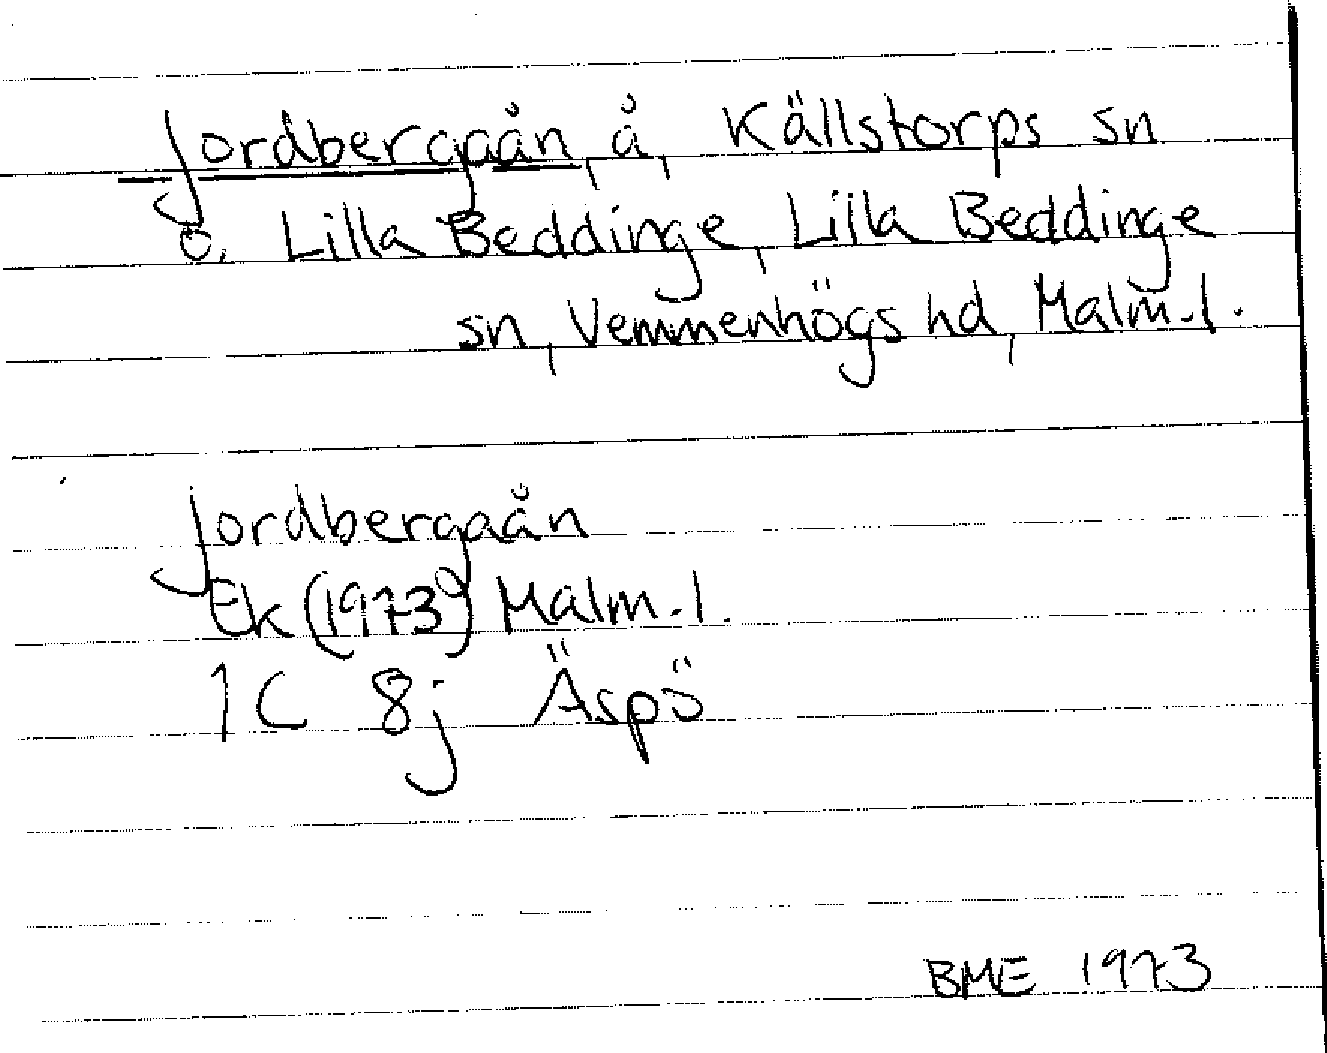 Jordbergaån, å, Källstorps sn
o. Lilla Beddinge, Lilla Beddinge
sn, Vemmenhögs hd, Malm.l.
Jordbergaån
Ek (1973) Malm.l.
1C 8j Äspö
BME 1973